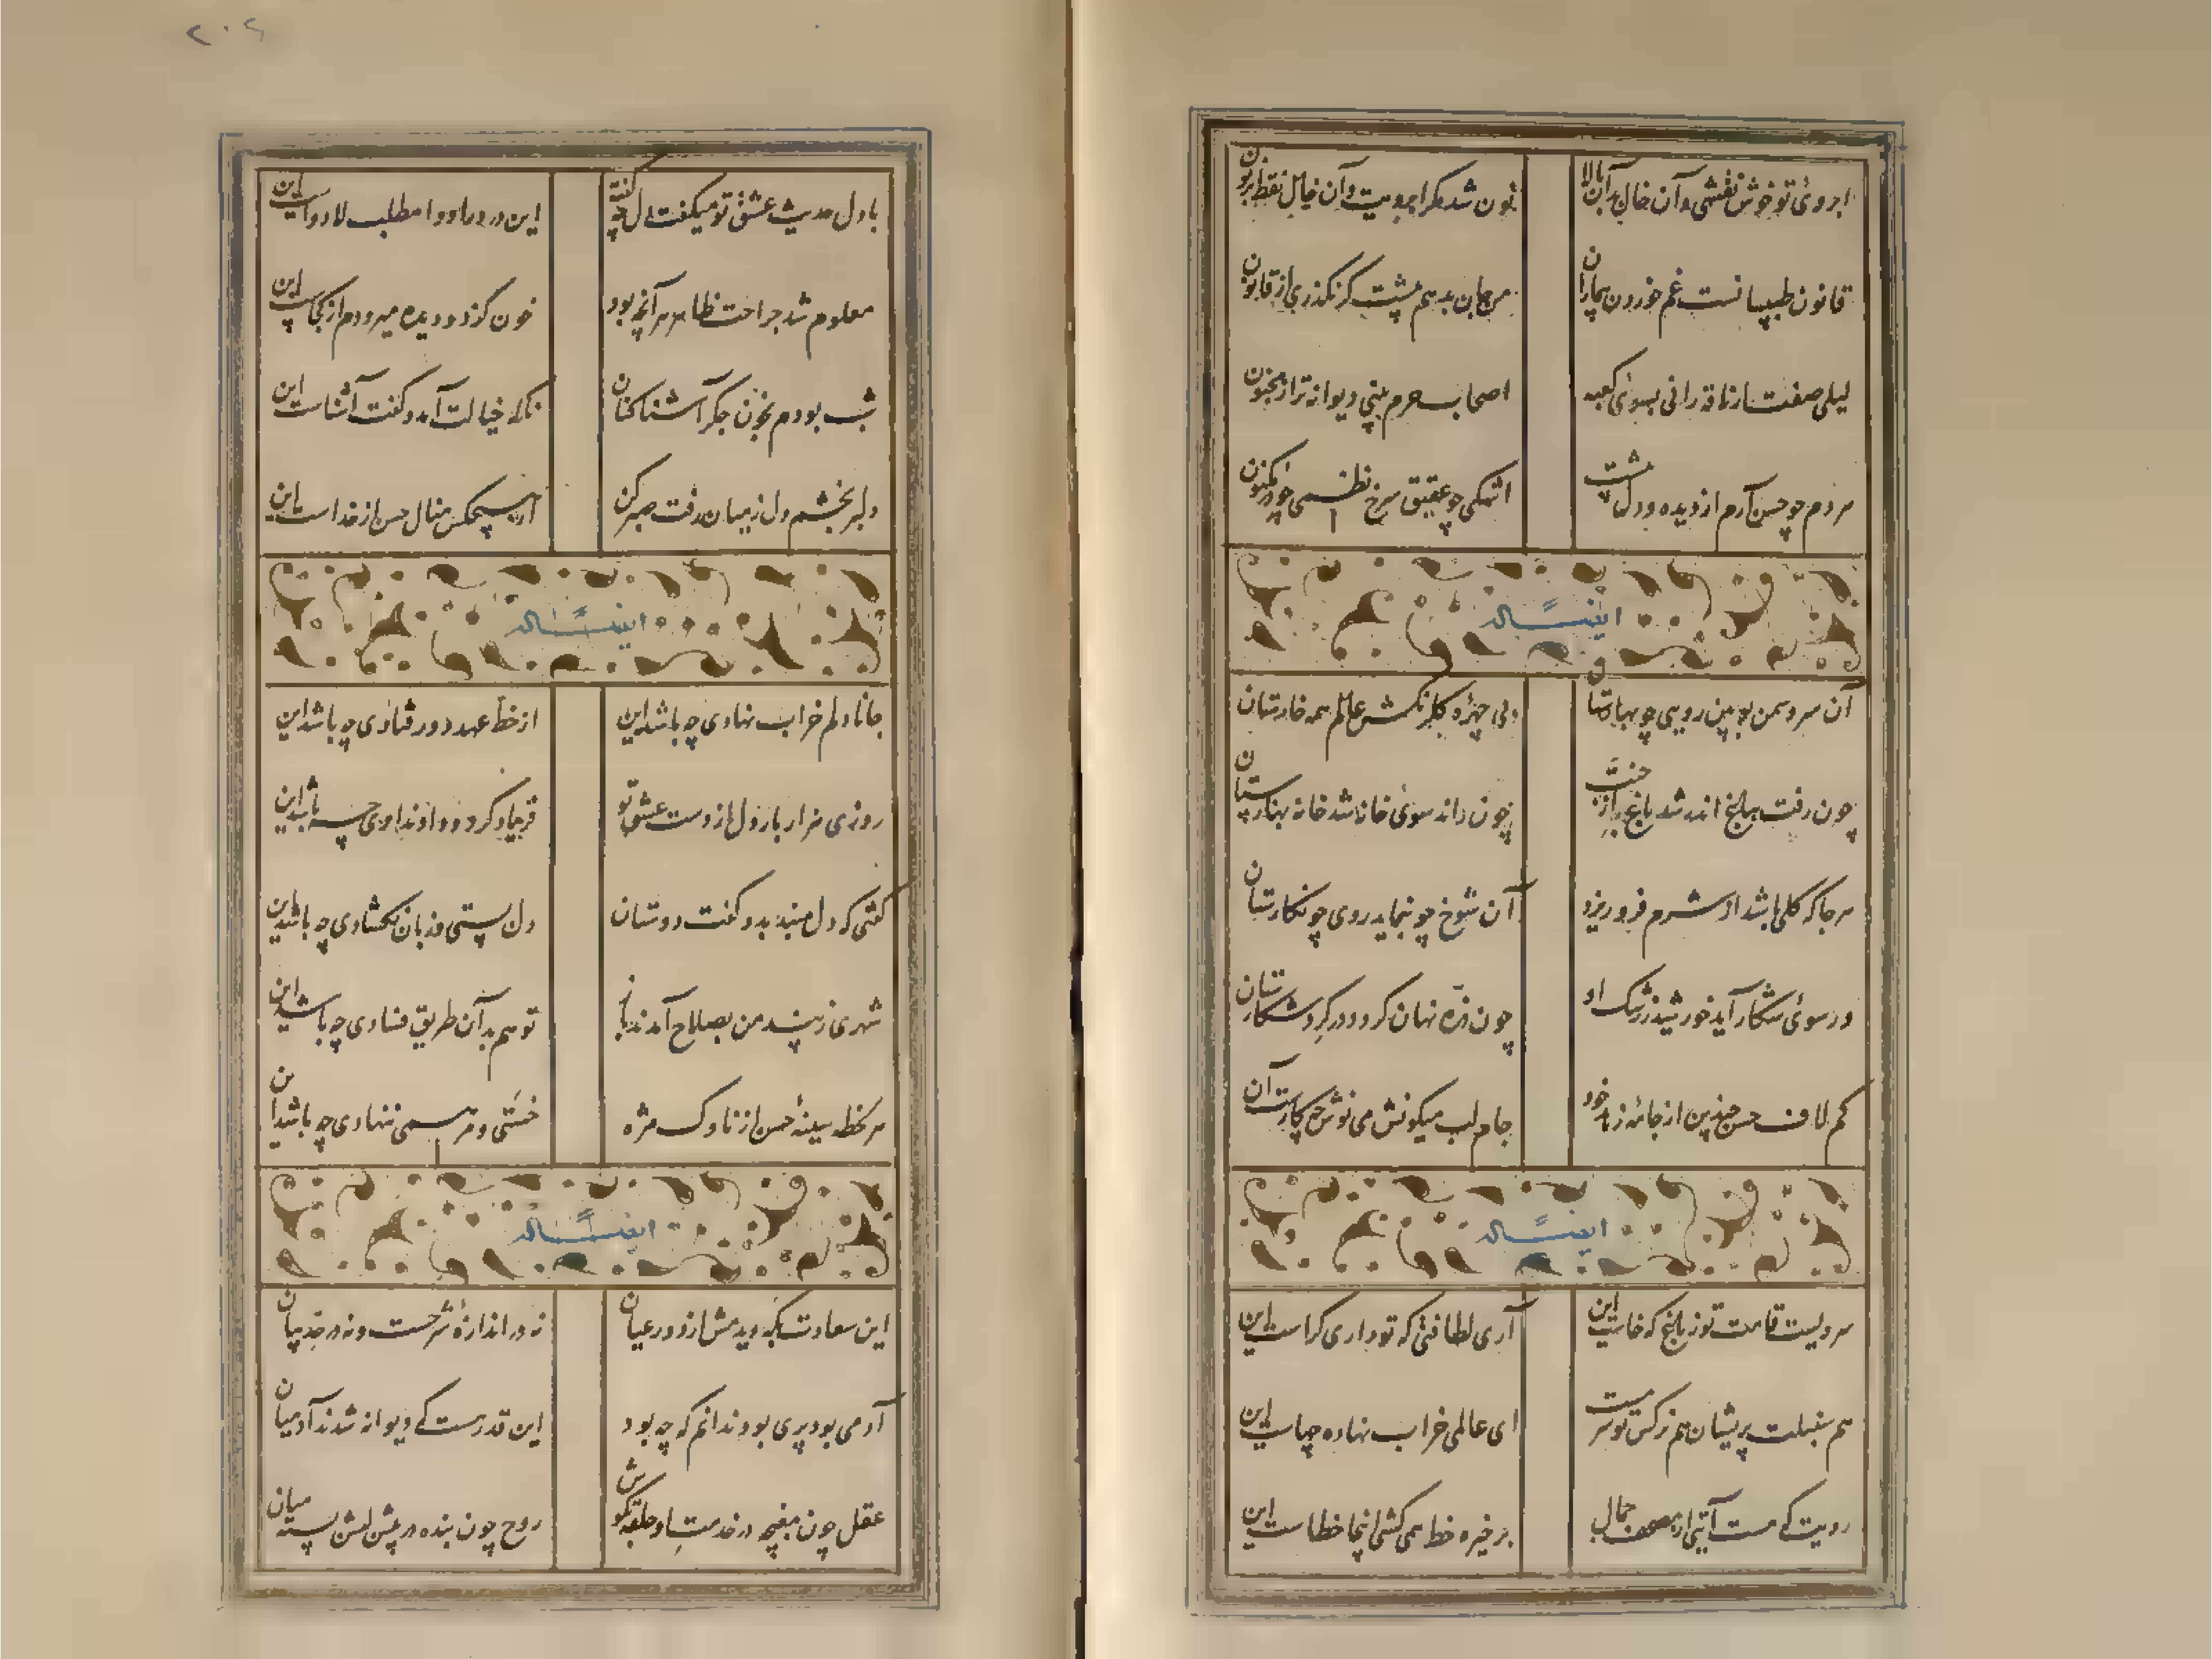 ابروی تو خوش نقشی وآن خال بر آن بالا
نون شد مگر ابرویت وآن خال نقط بر نون
قانون طبیبانست غم خوردن بیماران
من جان بدهم پیشت گر نگذری از قانون
لیلی صفت ار ناقه رانی بسوی کعبه
اصحاب حرم بینی دیوانه تر از مجنون
هر دم چو حسن آرم از دیده ودل پیشت
اشکی چو عقیق سرخ نظمی چو در مکنون
ایضاً له
آن سرو سمن بو بین رویی چو بهارستان
بی چهره گلرنگش عالم همه خارستان
چون رفت بباغ اندر شد باغ به از جنت
چون راند سوی خانه شد خانه بهارستان
هر جا که گلی باشد از شرم فرو ریزد
آن شوخ چو بنماید روی چو نگارستان
در سوی شکار آید خورشید ز رشک او
چون ذره نهان گردد در گرد شکارستان
کم لاف حسن چندین از جامه زهد خود
جام لب میگونش می نوش چه کارست آن
ایضاً له
سرویست قامت تو ز باغی که خاست این
آری لطافتی که تو داری کراست این
هم سنبلت پریشان هم نرگس تو مست
ای عالمی خراب نهاده چهاست این
رویت که هست آیتی از مصحف جمال
بر خیره خط همی کشی اینجا خطاست این
۲۰۶
با دل حدیث عشق تو میگفتم دل چه گفت
این درد ما ودوا مطلب لا دواست این
معلوم شد جراحت ظاهر هر آنچه بود
خون کز دو دیده میرودم از کجاست این
شب بودم بخون جگر آشنا کنان
ناگه خیالت آمد وگفت آشناست این
دلبر بخشم ودل ز میان رفت صبر کن
از هیچکس منال حسن از خداست این
ایضاً له
جانا دلم خراب نهادی چه باشد این
از خط عهد دور فتادی چه باشد این
روزی هزار بار دل از دست عشق تو
فریاد کرد وداد ندادی چه باشد این
گفتی که دل مبند بد وگفت دوستان
دل بستی وزبان نگشادی چه باشد این
شهری ز پند من بصلاح آمدند باز
تو هم بدآن طریق فسادی چه باشد این
هر لحظه سینه حسن از ناوک مژه
خستی ومرهمی ننهادی چه باشد این
ایضاً له
این سعادت نگه دیدمش از دور عیان
نه در اندازه شرحست ونه در حد بیان
آدمی بود پری بود ندانم که چه بود
این قدرست که دیوانه شدند آدمیان
عقل چون مغبچه در خدمت او حلقه بگوش
روح چون بنده در پیش لبش بسته میان